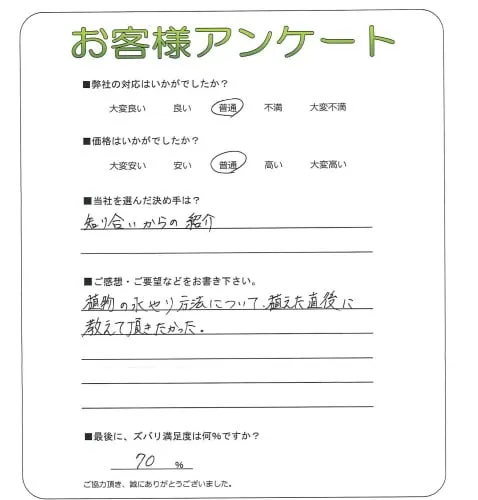 お客様アンケート
■弊社の対応はいかがでしたか?
大変良い 良い 普通 不満 大変不満
■価格はいかがでしたか?
大変安い 安い 普通 高い 大変高い
■当社を選んだ決め手は?
知り合いからの紹介
■ご感想・ご要望などをお書き下さい。
植物の水やり方法について、植えた直後に
教えて頂きたかった。
■最後に、ズバリ満足度は何%ですか?
70 %
ご協力頂き、誠にありがとうございました。